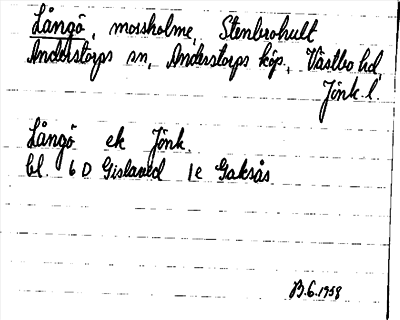 Långö, mossholme, Stenbrohult
Anderstorps sn, Anderstorps köp, Västbo hd,
Jönk. l.
Långö ek Jönk.
bl. 6D Gislaved 1e Gaksås
B.6.1958